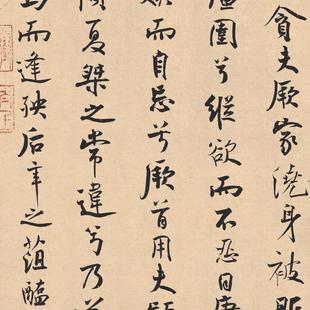 貪夫厥家澆身被服
圉兮縱欲而不忍日康
娛而自忘兮厥首用夫顛
夏桀之常違兮乃遂
焉而逢殃后辛之菹醢